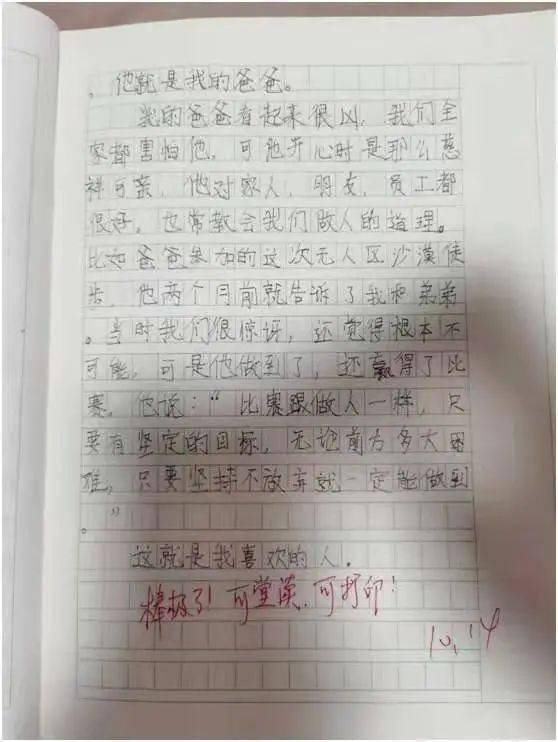 ，他就是我的爸爸。
我的爸爸看起来很凶，我们全
家都害怕他，可他开心时是那么慈
祥可亲，他对家人，朋友，员工都
很好，也常教会我们做人的道理。
比如爸爸参加的这次无人区沙漠徒
步，他两个月前就告诉了我和弟弟
。当时我们很惊讶，还觉得根本不
可能，可是他做到了，还赢得了比
赛，他说：“比赛跟做人一样，只
要有坚定的目标，无论前方多大困
难，只要坚持不放弃就一定能做到
。”
这就是我喜欢的人。
棒极了！可堂演、可打印！
10.14